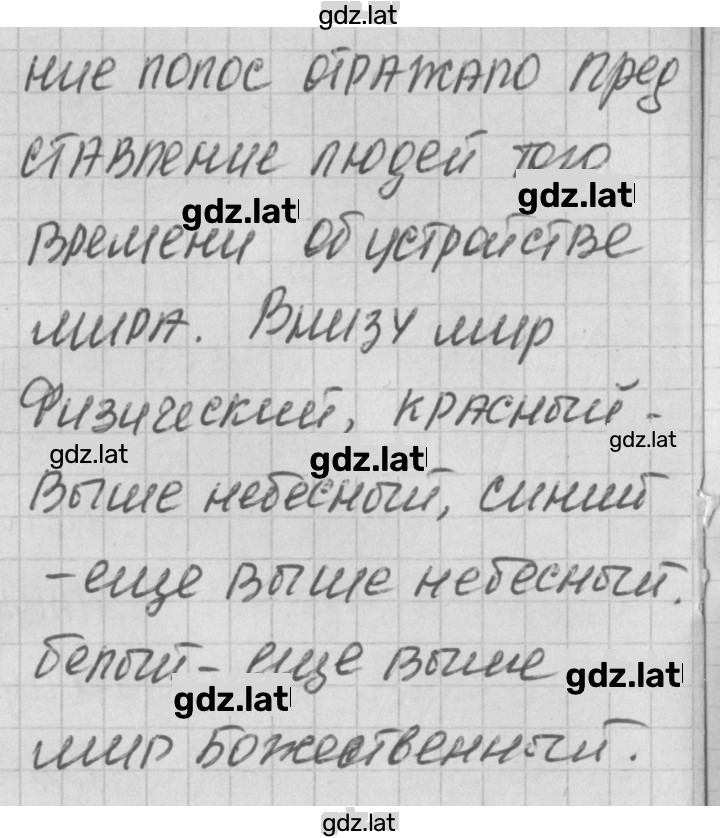 gdz.lat
ние полос отражало пред
ставление людей того
gdz.lat
gdz.lat
времени об устройстве
мира. Внизу мир
Физический, красный -
gdz.lat
gdz.lat
gdz.lat
выше небесный, синий
- еще выше небесный.
белый - еще выше
gdz.lat
gdz.lat
мир Божественный.
gdz.lat